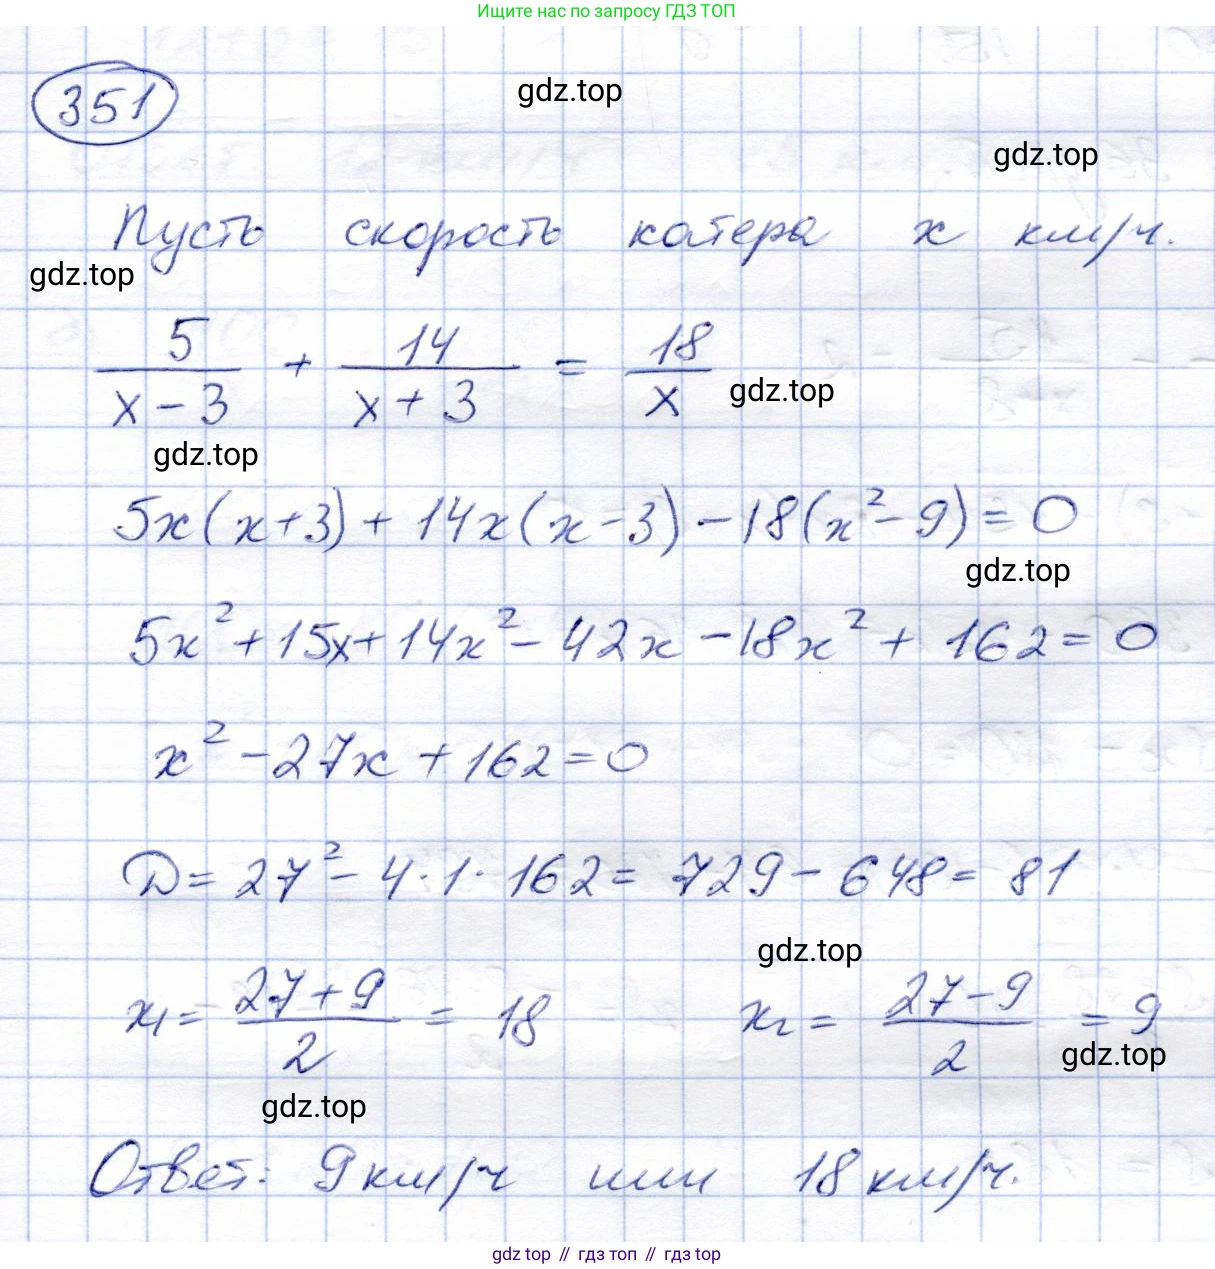 Ищите нас по запросу ГДЗ ТОП
351
gdz.top
gdz.top
Пусть скорость катера x км/ч.
gdz.top
5/(x − 3) + 14/(x + 3) = 18/x
gdz.top
gdz.top
5x(x+3) + 14x(x−3) − 18(x² − 9) = 0
gdz.top
5x² + 15x + 14x² − 42x − 18x² + 162 = 0
x² − 27x + 162 = 0
D = 27² − 4·1·162 = 729 − 648 = 81
gdz.top
x₁ = (27+9)/2 = 18 x₂ = (27−9)/2 = 9
gdz.top
gdz.top
Ответ: 9 км/ч или 18 км/ч.
gdz top // гдз топ // гдз top